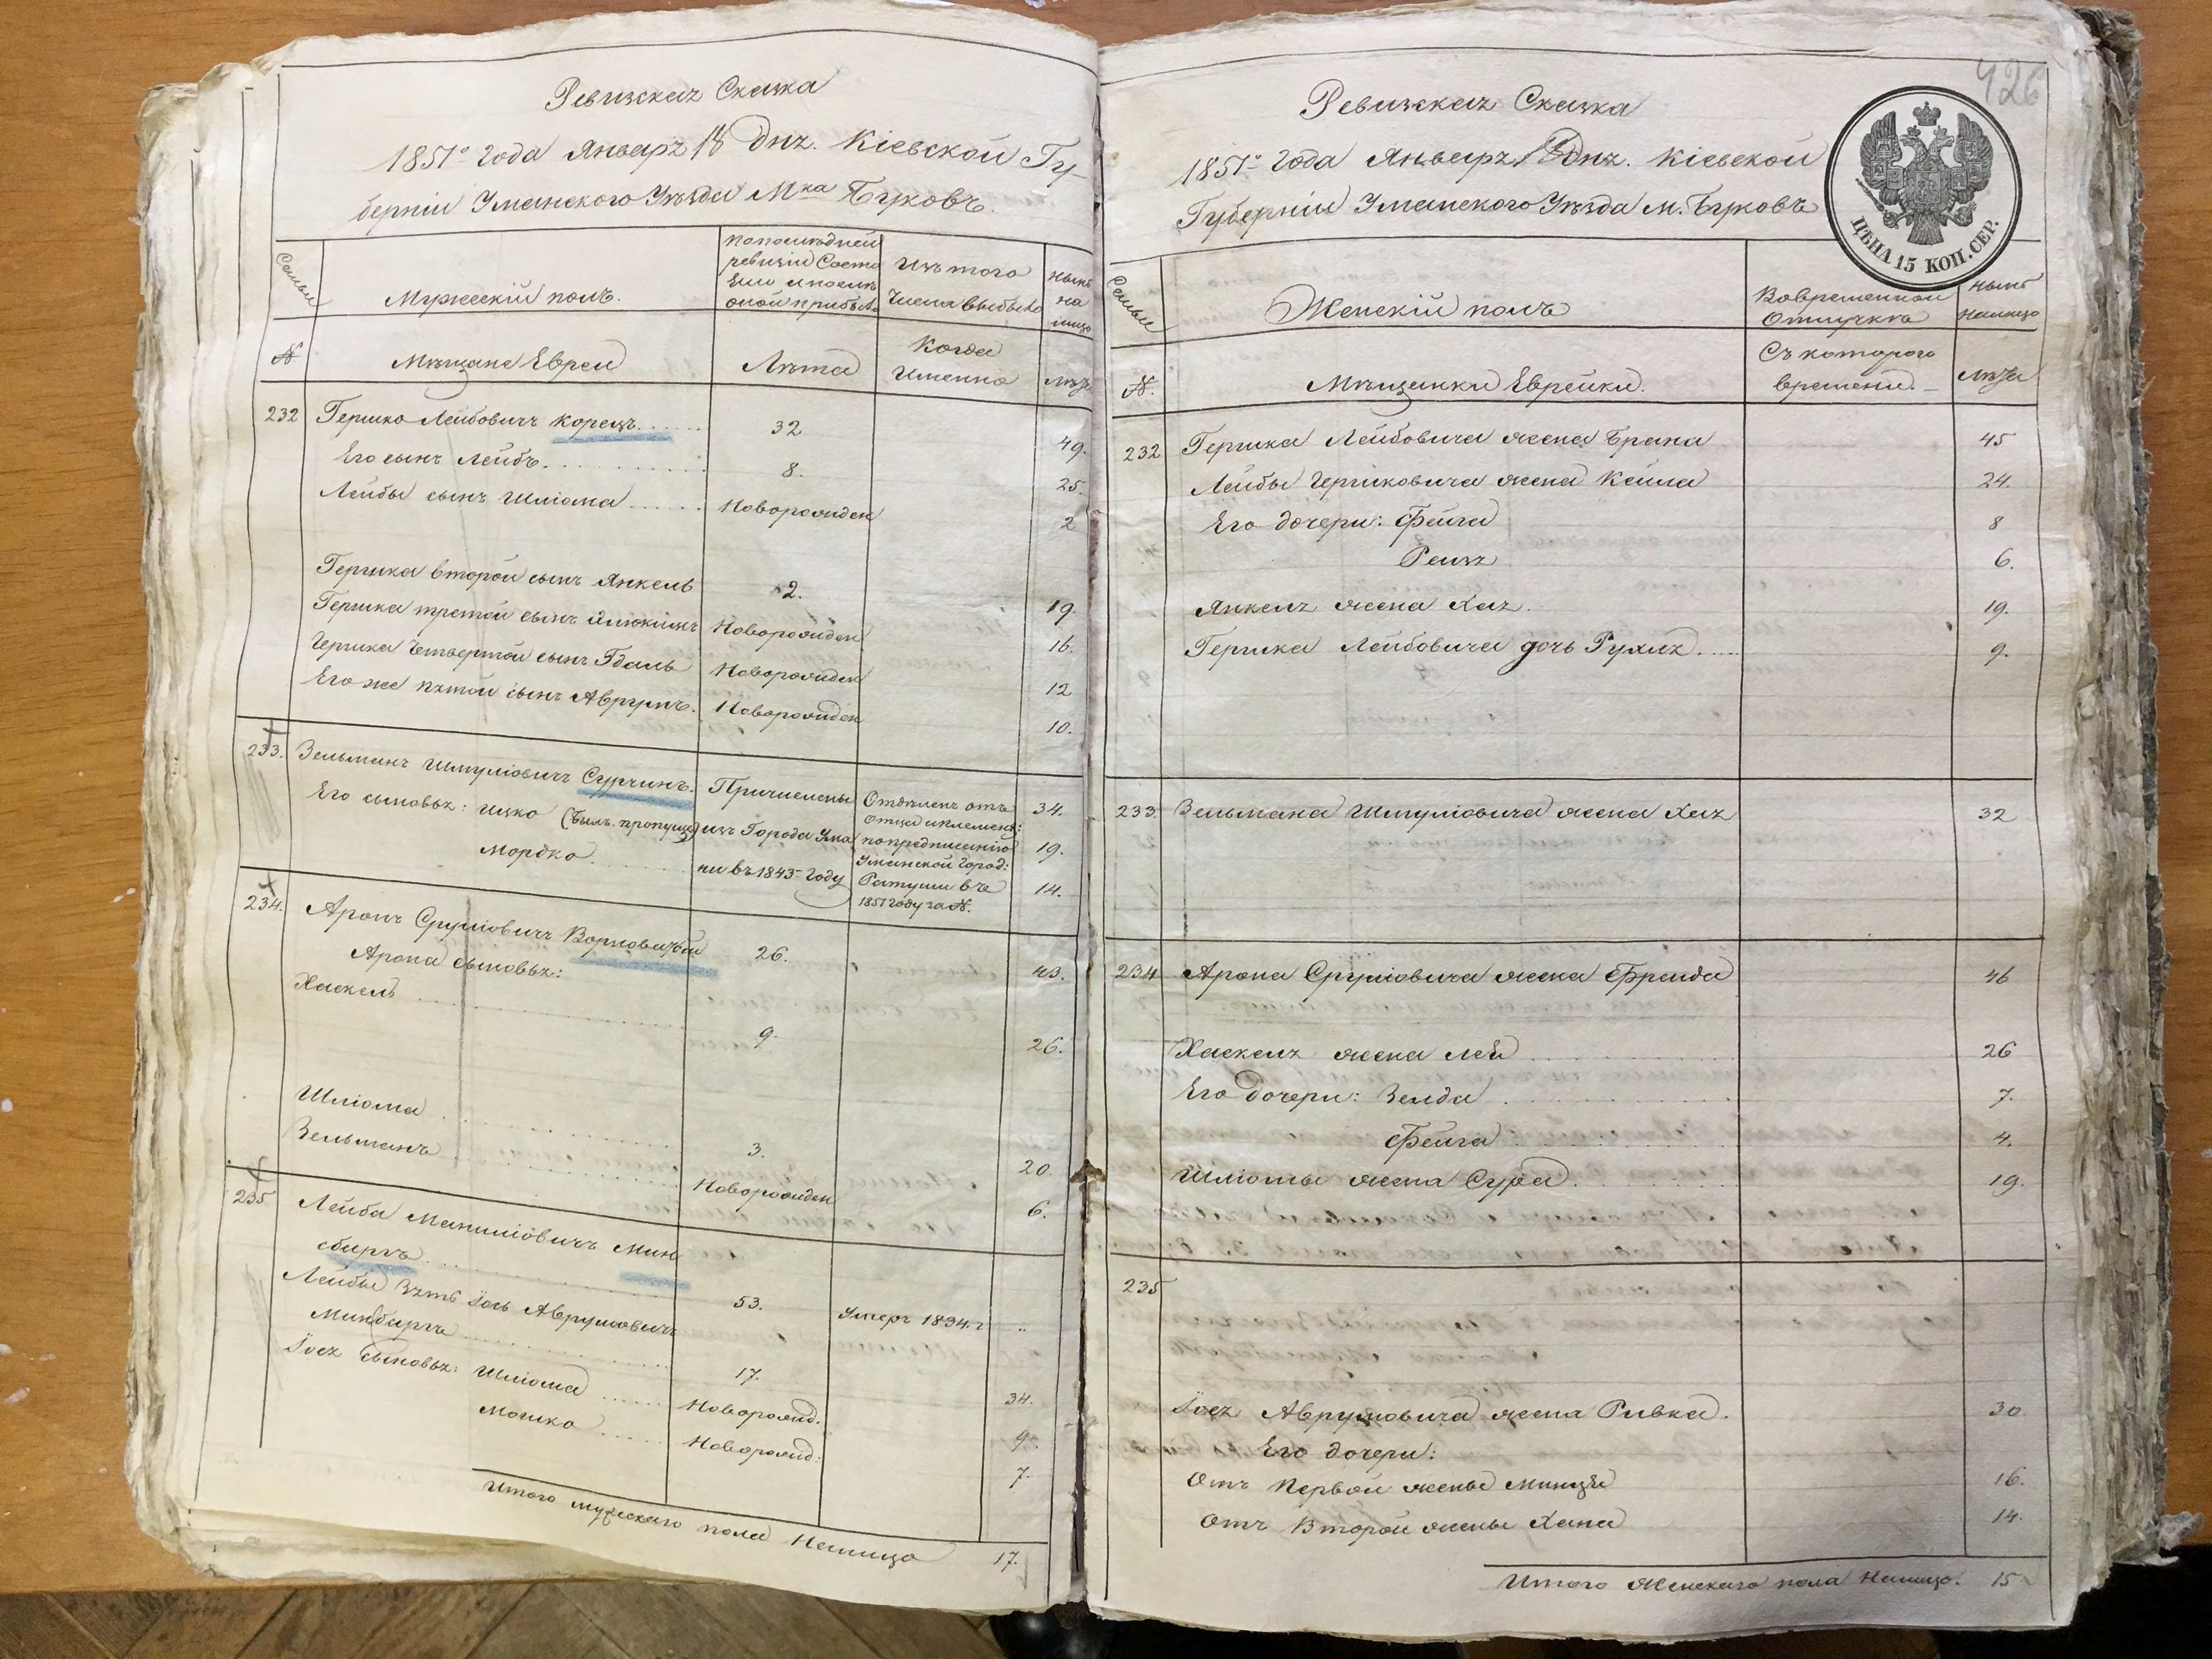 Ревизская Сказка
1851го года Января 18 Дня. Кіевской Гу-
берніи Уманского Уѣзда Мка Буковъ.
Семьи
Мужескій полъ.
По последней
ревизіи Состо
яло и после
оной прибыло
Изъ того
числа выбыло
Нынѣ
на
лицо
№
Мѣщане Евреи
Лѣта
Когда
Именно
Лѣта
232 Гершко Лейбовичъ Корецъ...... 32 49.
Его сынъ Лейбъ. 8. 25.
Лейбы сынъ Шліома Новорожден 2
Гершка второй сынъ Янкель 2. 19.
Гершка третой сынъ Новорожден 16.
Гершка Четвертой сынъ Гдаль Новорожден 12
Его же пятой сынъ Аврумъ. Новорожден 10.
233. Зельманъ Шмуліовичъ Сурчинъ. Причислены Отдѣленъ отъ 34.
отца
Его сыновья: Ицко (былъ пропущ) изъ Города Ума по предписанію 19.
Уманской Город:
Мордко ни въ 1843 Году Ратуши въ 14.
1851 году за №.
234. Аронъ Сруліовичъ 26. 43.
Арона сыновья:
Хаскель 9. 26.
Шліома 3. 20.
Зельманъ Новорожден 6.
235 Лейба Маниліовичъ Мин
сбиргъ 53. Умеръ 1834. г „
Лейбы Зять Іось Аврумовичъ
Минсбиргъ 17. 34.
Іося Сыновья: Шліома Новорожд. 9.
Мошко Новорожд: 7.
Итого мужескаго пола Налицо 17.
426
Ревизская Сказка
1851го Года Января 18 Дня. Кіевской
Губерніи Уманского Уѣзда М. Буковъ
ЦѢНА 15 КОП. СЕР.
Семьи
Женскій полъ
Во временной
Отлучкѣ
Нынѣ
Налицо
№.
Мѣщанки Еврейки.
Съ которого
времени.
Лѣта
232 Гершка Лейбовича жена Брана 45
Лейбы Гершковича жена Кейла 24.
Его дочери: Фейга 8
Рейзя 6.
Янкеля жена Хая. 19.
Гершка Лейбовича дочь Рухля. 9.
233. Зельмана Шмуліовича жена Хая 32
234 Арона Сруліовича жена Фрейда 46
Хаскеля жена Лея 26
Его дочери: Зелда 7.
Фейга 4.
Шліомы жена Сура. 19.
235
Іося Аврумовича жена Ривка. 30.
Его дочери:
Отъ Первой жены 16.
Отъ Второй жены Хана 14.
Итого Женскаго пола Налицо. 15